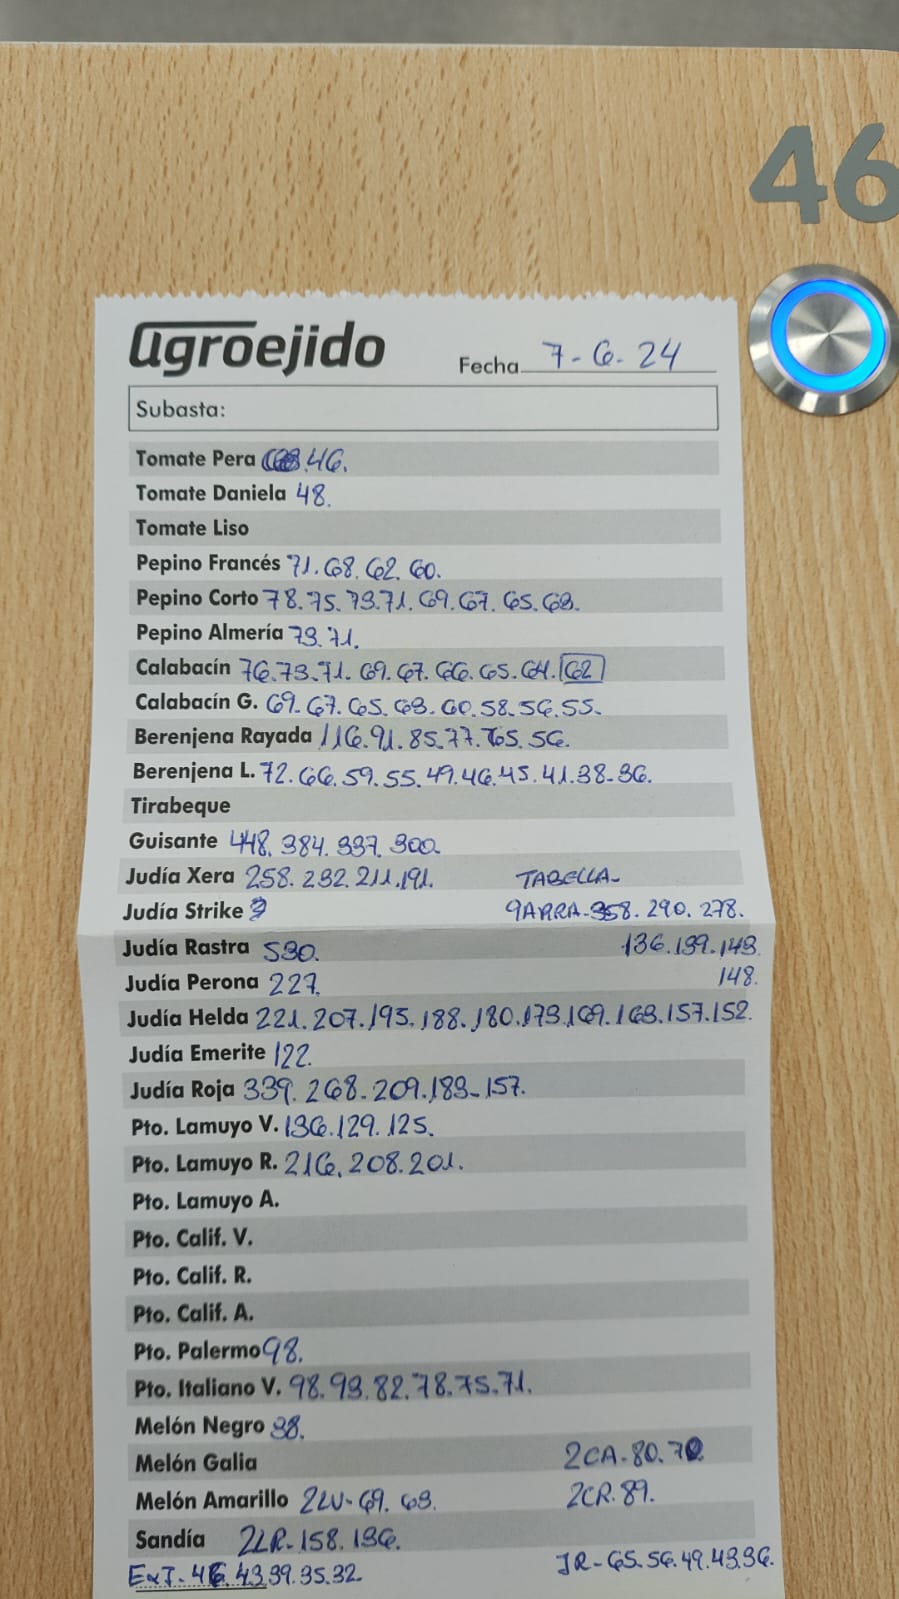 46
agroejido
Fecha 7-6-24
Subasta:
Tomate Pera 46.
Tomate Daniela 48.
Tomate Liso
Pepino Francés 71.68.62.60.
Pepino Corto 78.75.73.71.69.67.65.63.
Pepino Almería 73.71.
Calabacín 76.73.71.69.67.66.65.64.62
Calabacín G. 69.67.65.63.60.58.56.55.
Berenjena Rayada 116.91.85.77.65.56.
Berenjena L. 72.66.59.55.49.46.45.41.38-36.
Tirabeque
Guisante 448.384.337.300.
Judía Xera 258.232.211.191. TABELLA-
Judía Strike GARRA-358.290.278.
Judía Rastra 530. 136.139.143.
Judía Perona 227. 148.
Judía Helda 221.207.195.188.180.173.169.163.157.152.
Judía Emerite 122.
Judía Roja 339.268-209.183-157.
Pto. Lamuyo V. 136.129.125.
Pto. Lamuyo R. 216.208.201.
Pto. Lamuyo A.
Pto. Calif. V.
Pto. Calif. R.
Pto. Calif. A.
Pto. Palermo 98.
Pto. Italiano V. 98.93.82.78.75.71.
Melón Negro 38.
Melón Galia 2CA-80.70
Melón Amarillo 2LV-69.63. 2CR.89.
Sandía 2LR-158.136.
ExT-46.43.39.35.32. JR-65.56.49.43.36.